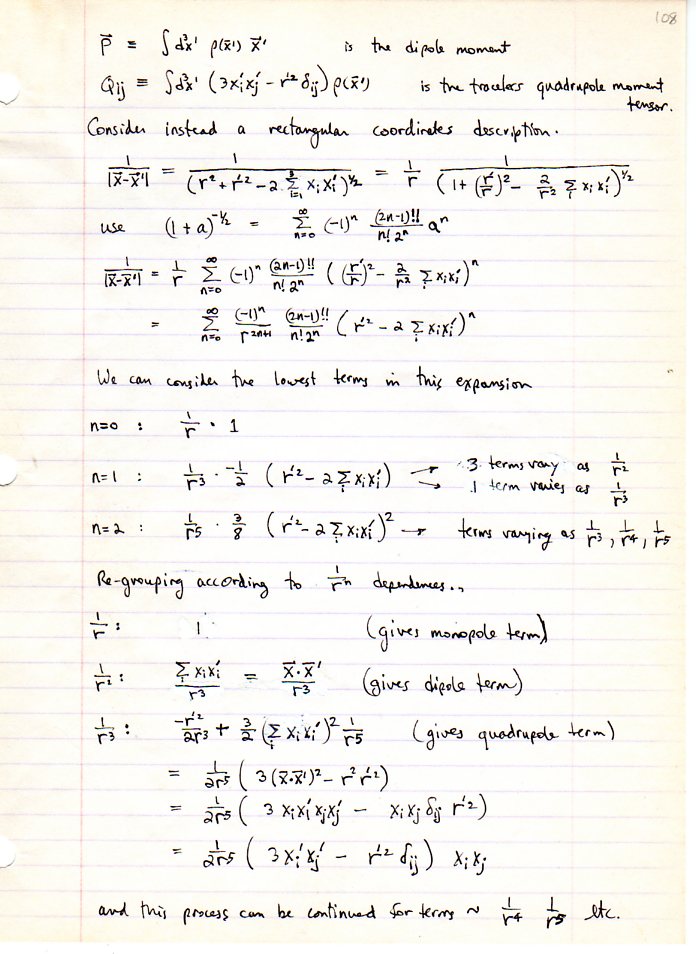 108
P⃗ ≡ ∫d³x' ρ(x⃗') x⃗' is the dipole moment
Qij ≡ ∫d³x' (3xi'xj' - r'² δij) ρ(x⃗') is the traceless quadrupole moment
tensor.
Consider instead a rectangular coordinates description.
1/|x⃗-x⃗'| = 1/(r² + r'² - 2 Σ_{i=1}^{3} xi xi')^{1/2} = 1/r 1/(1 + (r'/r)² - 2/r² Σ_i xi xi')^{1/2}
use (1+a)^{-1/2} = Σ_{n=0}^{∞} (-1)^n (2n-1)!!/(n! 2^n) a^n
1/|x⃗-x⃗'| = 1/r Σ_{n=0}^{∞} (-1)^n (2n-1)!!/(n! 2^n) ((r'/r)² - 2/r² Σ_i xi xi')^n
= Σ_{n=0}^{∞} (-1)^n/r^{2n+1} (2n-1)!!/(n! 2^n) (r'² - 2 Σ_i xi xi')^n
We can consider the lowest terms in this expansion
n=0 : 1/r · 1
n=1 : 1/r³ · -1/2 (r'² - 2 Σ_i xi xi') → 3 terms vary as 1/r²
→ 1 term varies as 1/r³
n=2 : 1/r⁵ · 3/8 (r'² - 2 Σ_i xi xi')² → terms varying as 1/r³, 1/r⁴, 1/r⁵
Re-grouping according to 1/r^n dependences..
1/r : 1 (gives monopole term)
1/r² : Σ_i xi xi'/r³ = x⃗·x⃗'/r³ (gives dipole term)
1/r³ : -r'²/2r³ + 3/2 (Σ_i xi xi')² 1/r⁵ (gives quadrupole term)
= 1/2r⁵ (3(x⃗·x⃗')² - r² r'²)
= 1/2r⁵ (3 xi xi' xj xj' - xi xj δij r'²)
= 1/2r⁵ (3 xi' xj' - r'² δij) xi xj
and this process can be continued for terms ~ 1/r⁴ 1/r⁵ etc.